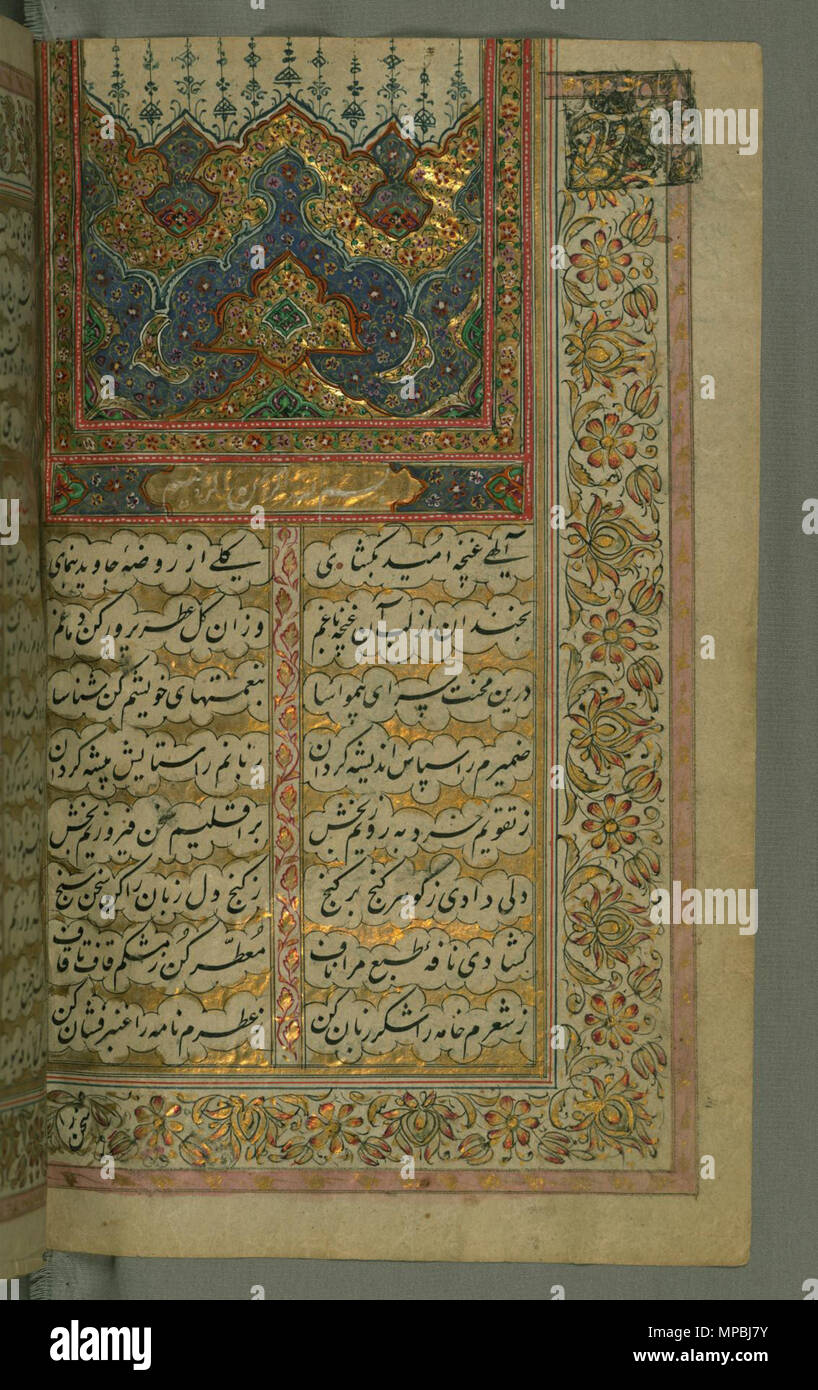 بسم الله الرحمن الرحیم
آلهی غنچهٔ امید بکشای گلی از روضهٔ جاوید بنمای
بخندان از لب آن غنچه باغم وزان گل عطر پرور کن دماغم
درین محنت سرای بی مواسا بنعمتهای خویشم کن شناسا
ضمیرم را سپاس اندیشه کردان زبانم را ستایش پیشه کردان
ز تقویم خرد به روزیم بخش بر اقلیم سخن فیروزیم بخش
دلی دادی ز گوهر کنج بر کنج ز کنج دل زبان را کن سخن سنج
کشادی نافهٔ طبع مرا ناف مُعطّر کن ز مشکم قاف تا قاف
ز شعرم خامه را شکر زبان کن ز عطرم نامه را عنبر فشان کن
سخن را
alamy
Image ID: MPBJ7Y
www.alamy.com